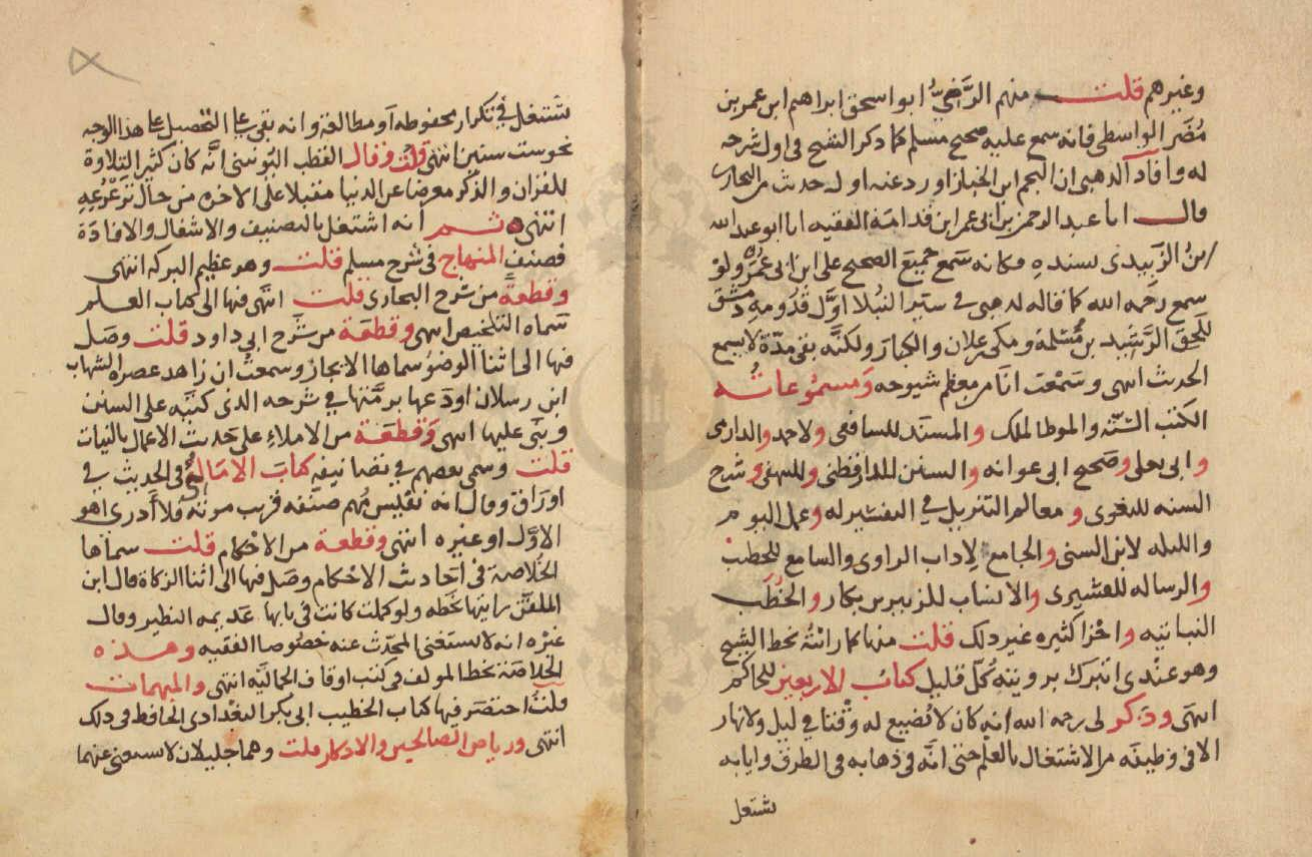 وغيرهم قلت منهم الرضي ابو اسحق ابراهيم ابن عمر بن
مضر الواسطى فانه سمع عليه صحيح مسلم كما ذكر الشيخ فى اول شرحه
له وافاد الذهبى ان النجم ابن الخباز اورد عنه اوله حدث من البخارى
قال انا عبد الرحمن بن ابى عمر ابن قدامة الفقيه انا ابو عبد الله
ابن الزبيدى بسنده وكانه سمع جميع الصحيح على ابن ابى عمر ولو
سمع رحمه الله كما قاله الذهبى فى سير النبلا اول قدومه دمشق
للحق الرشيد بن مسلمة ومكى بن علان والكبار ولكنه بقى مدة لا يسمع
الحديث انتهى وسمعت انا من معظم شيوخه ومسموعاته
الكتب الستة والموطا لمالك والمسند للشافعى ولاحمد والدارمى
وابى يعلى وصحيح ابى عوانه والسنن للدارقطنى وللبيهقى وشرح
السنه للبغوى ومعالم التنزيل فى التفسير له وعمل اليوم
والليله لابن السنى والجامع لاداب الراوى والسامع للخطيب
والرساله للقشيرى والانساب للزبير بن بكار والخطب
النباتيه واجزا كثيره غير ذلك قلت منها كما رائته بخط الشيخ
وهو عندى اتبرك برويته كل قليل كتاب الاربعين للحاكم
انتهى وذكر لى رحمه الله انه كان لا يضيع له وقتا فى ليل ولا نهار
الا فى وظيفه من الاشتغال بالعلم حتى انه فى ذهابه فى الطرق وايابه
يشتغل
يشتغل فى تكرار محفوظه او مطالعة وانه بقى على التحصيل على هذا الوجه
نحوست سنين انتهى قلت وقال القطب اليونينى انه كان كثير التلاوة
للقران والذكر معرضا عن الدنيا مقبلا على الاخره من حال ترعرعه
انتهى ثم انه اشتغل بالتصنيف والاشغال والافادة
فصنف المنهاج فى شرح مسلم قلت وهو عظيم البركه انتهى
وقطعة من شرح البخارى قلت انتهى فيها الى كتاب العلم
سماه التلخيص انتهى وقطعة من شرح ابى داود قلت وصل
فيها الى اثنا الوضوء سماها الايجاز وسمعت ان زاهد عصره الشهاب
ابن رسلان اودعها برمتها فى شرحه الذى كتبه على السنن
وبنى عليها انتهى وقطعة من الاملاء على حديث الاعمال بالنيات
قلت وسمى بعضهم فى تصانيفه كتاب الامالى فى الحديث فى
اوراق وقال انه نفيس مهم صنفه قريب موته فلا أدرى اهو
الاول او غيره انتهى وقطعة من الاحكام قلت سماها
الخلاصة فى احاديث الاحكام وصل فيها الى اثنا الزكاة قال ابن
الملقن رايتها بخطه ولو كملت كانت فى بابها عديمه النظير وقال
غيره انه لا يستغنى المحدث عنه خصوصا الفقيه وهذه
الخلاصة بخط المولف فى كتب اوقاف الجماليه انتهى والمبهمات
قلت اختصر فيها كتاب الخطيب ابى بكر البغدادى الحافظ فى ذلك
انتهى ورياض الصالحين والاذكار قلت وهما جليلان لا يستغنى عنهما